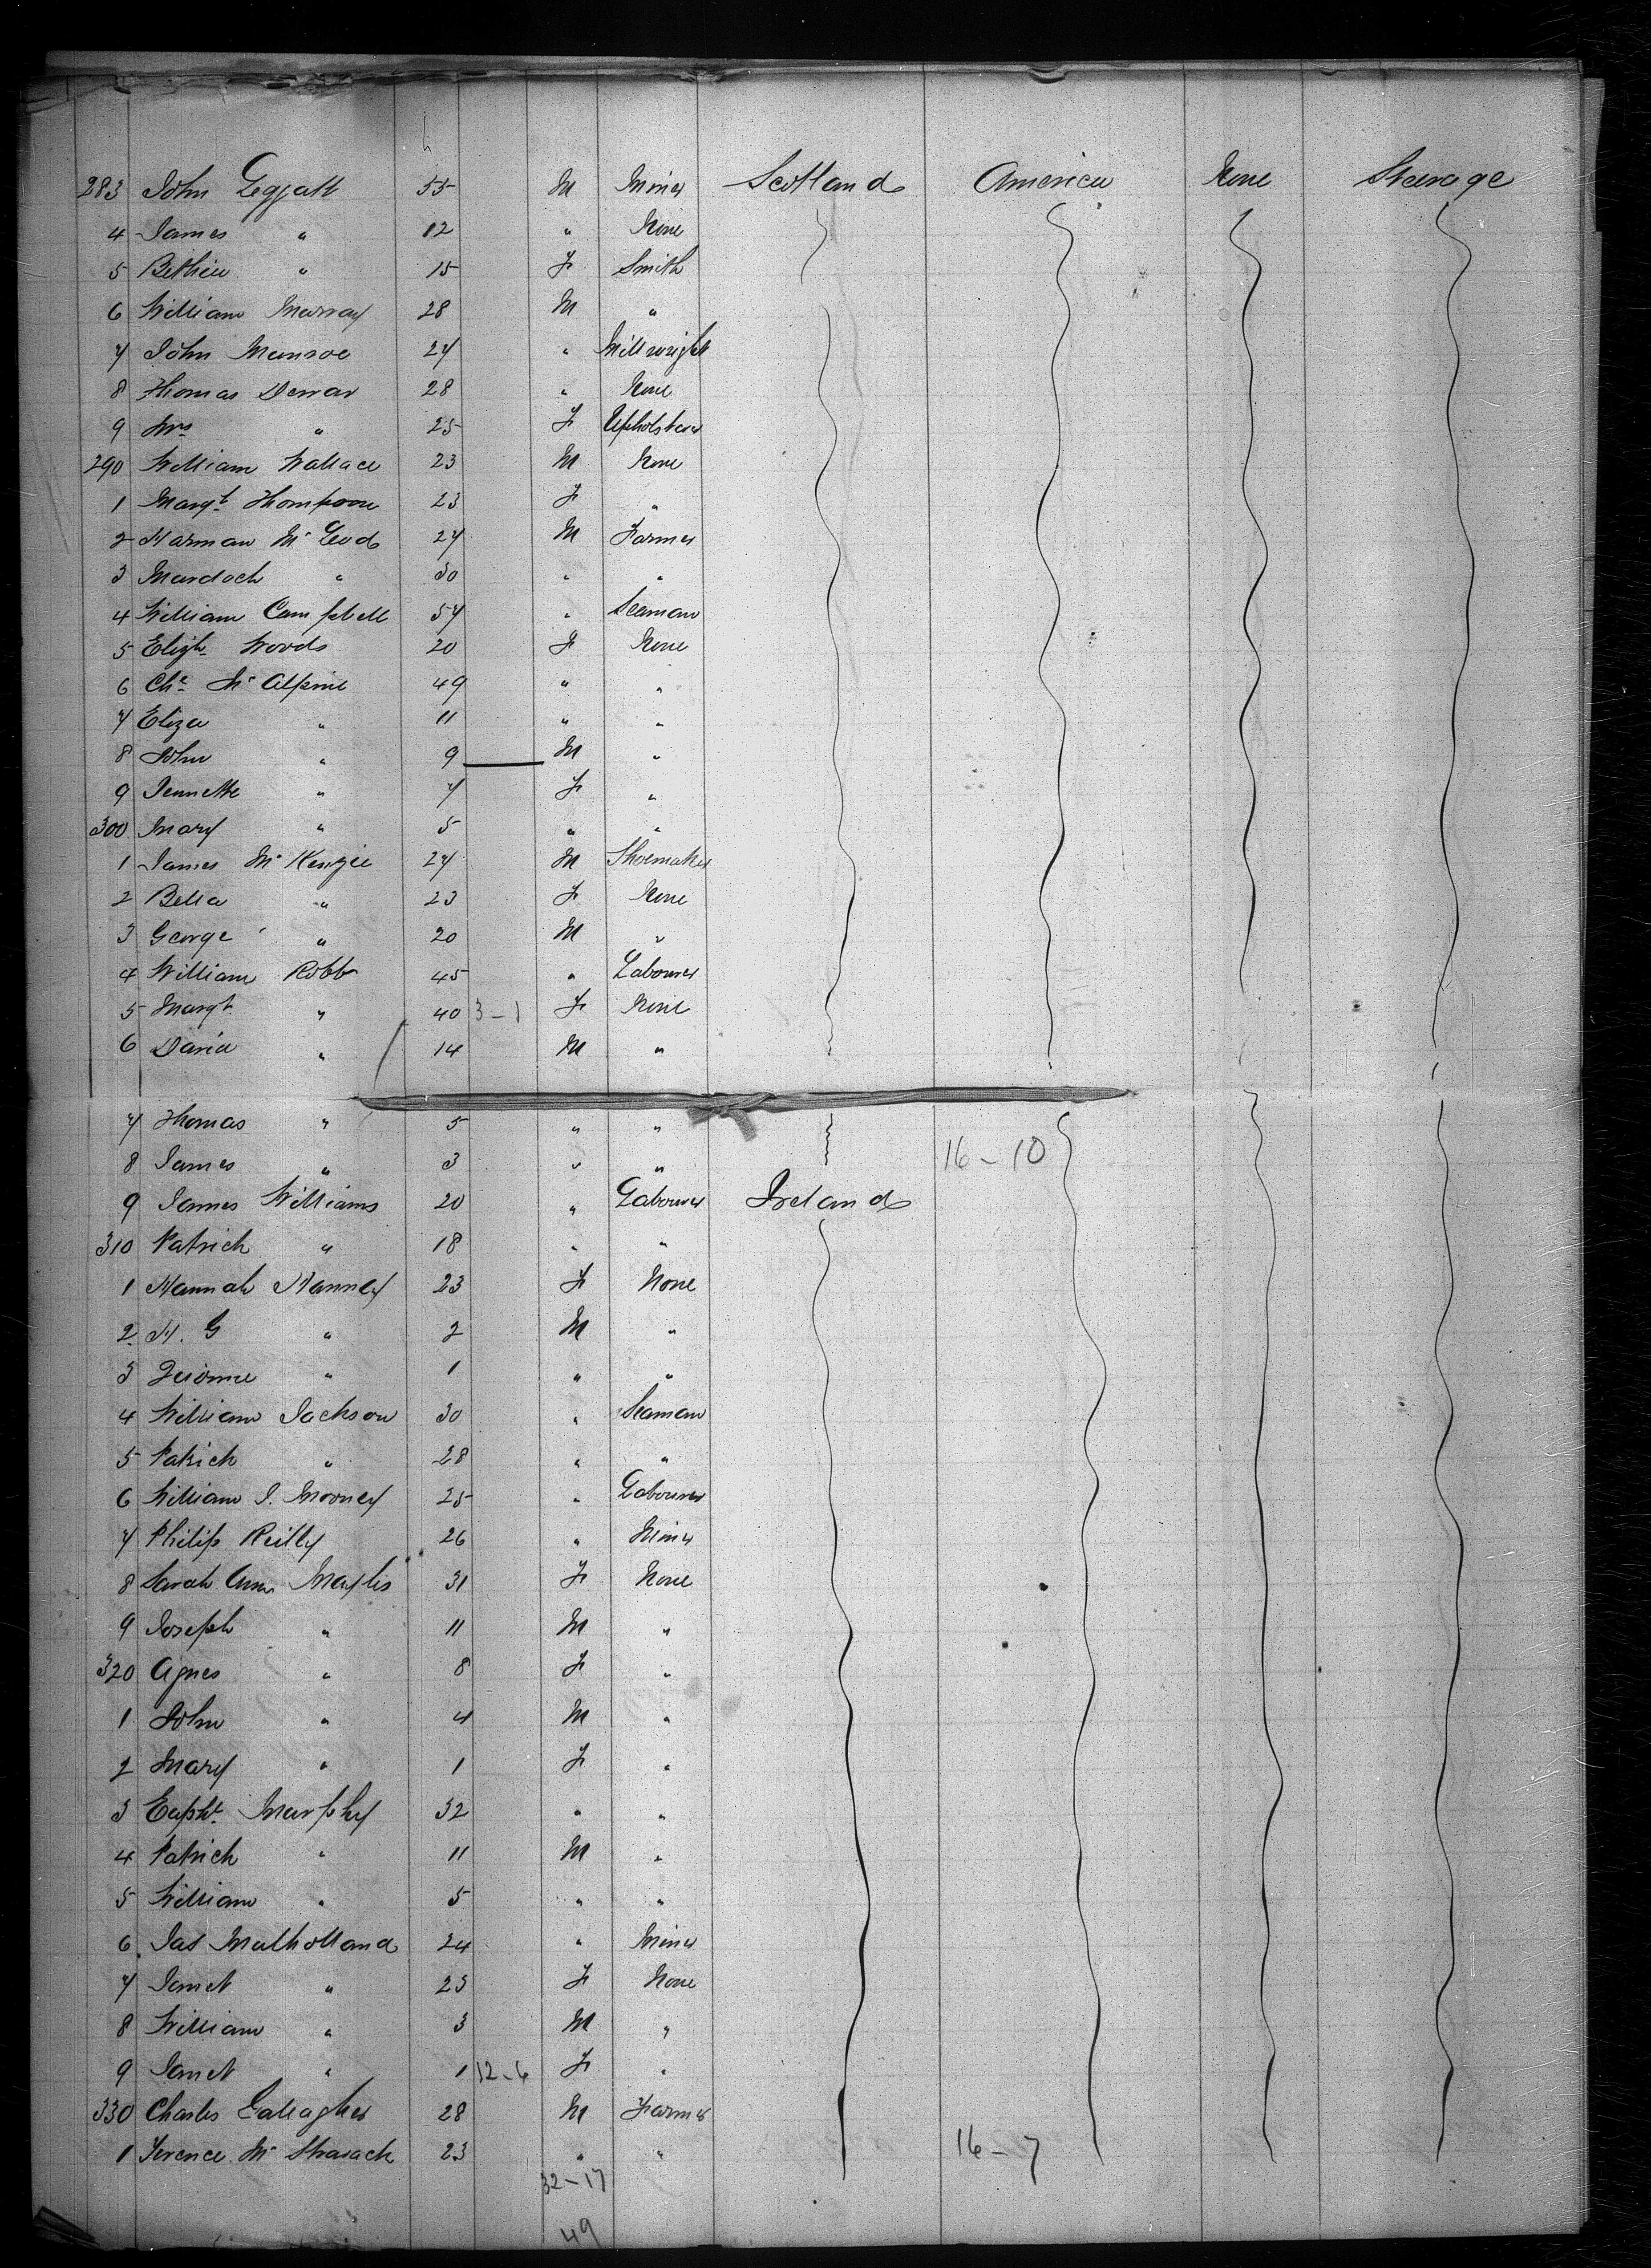 283 John Leggatt 55 M Miner Scotland America None Steerage
4 James " 12 " None
5 Bethieu " 15 F Smith
6 William Murray 28 M "
7 John Munroe 27 " Millwright
8 Thomas Dewar 28 " None
9 Mrs " 25 F Upholsterer
290 William Wallace 23 M None
1 Margt Thompson 23 F "
2 Norman McLeod 27 M Farmer
3 Murdoch " 30 " "
4 William Campbell 57 " Seaman
5 Elizh Woods 20 F None
6 Che McAlpine 49 " "
7 Eliza " 11 " "
8 John " 9 M "
9 Jennette " 7 F "
300 Mary " 5 " "
1 James McKenzie 27 M Shoemaker
2 Bella " 23 F None
3 George " 20 M "
4 William Robb 45 " Labourer
5 Margt " 40 3-1 F None
6 David " 14 M "
7 Thomas " 5 " "
8 James " 3 " " 16-10
9 James Williams 20 " Labourer Ireland
310 Patrick " 18 " "
1 Hannah Hanney 23 F None
2 H. G " 2 M "
3 Jerome " 1 " "
4 William Jackson 30 " Seaman
5 Patrick " 28 " "
6 William J. Mooney 25 " Labourer
7 Philip Reilly 26 " Miner
8 Sarah Ann 31 F None
9 Joseph " 11 M "
320 Agnes " 8 F "
1 John " 4 M "
2 Mary " 1 F "
3 Murphy 32 " "
4 Patrick " 11 M "
5 William " 5 " "
6 Jas Mulholland 24 " Miner
7 Janet " 23 F None
8 William " 3 M "
9 Janet " 1 12-6 F "
330 Charles Gallagher 28 M Farmer
1 Terence Mc 23 " " 16-7
32-17
49